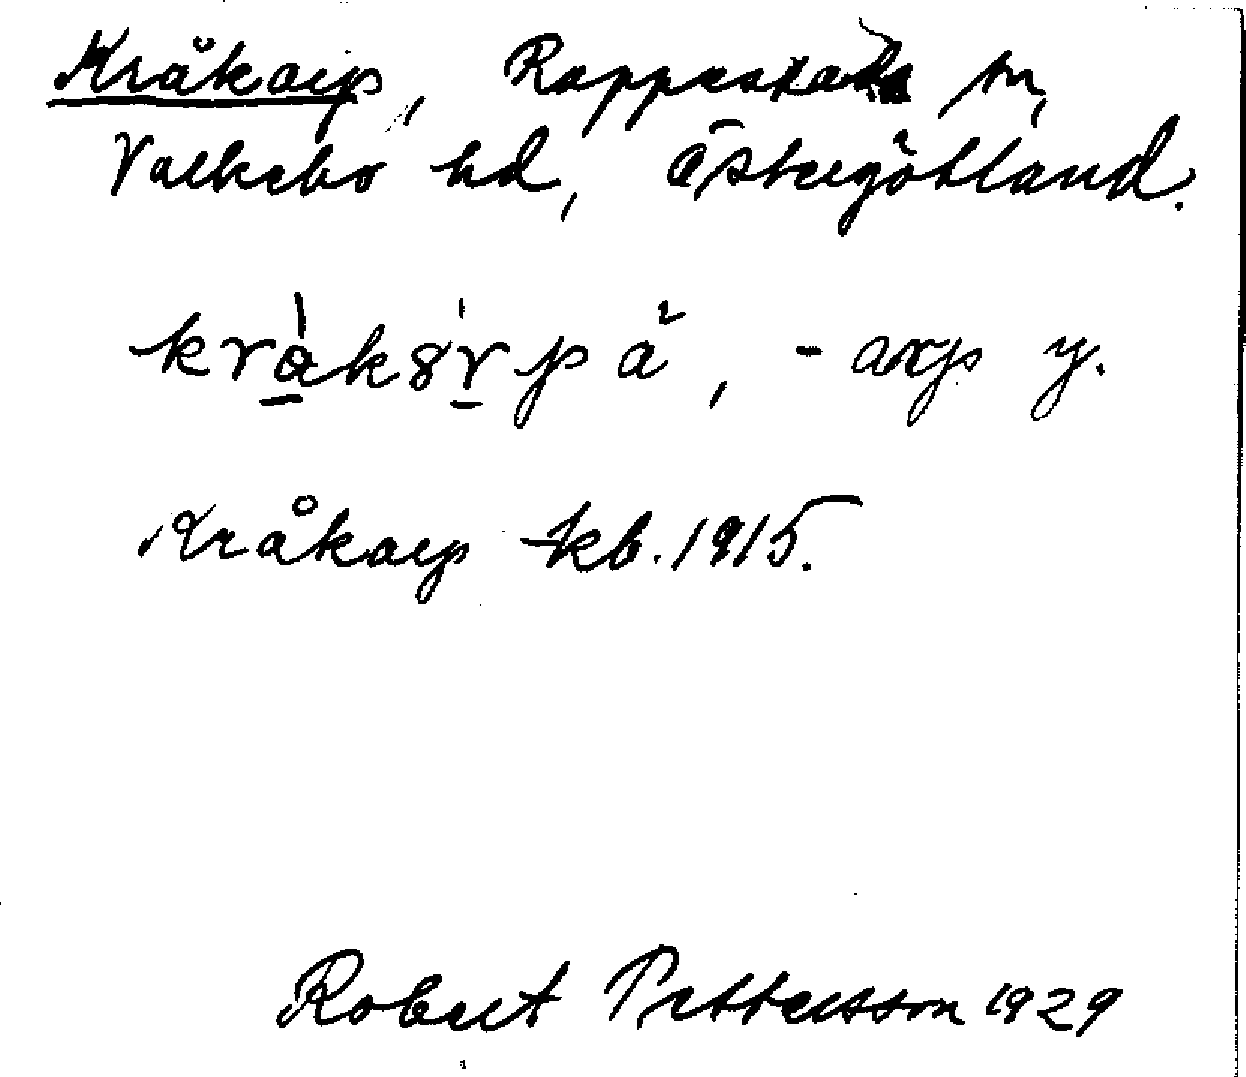 Kråkarp, Rappestads sn,
Valkebo hd, Östergötland.
, -arp y.
Kråkarp kb. 1915.
Robert Pettersson 1929